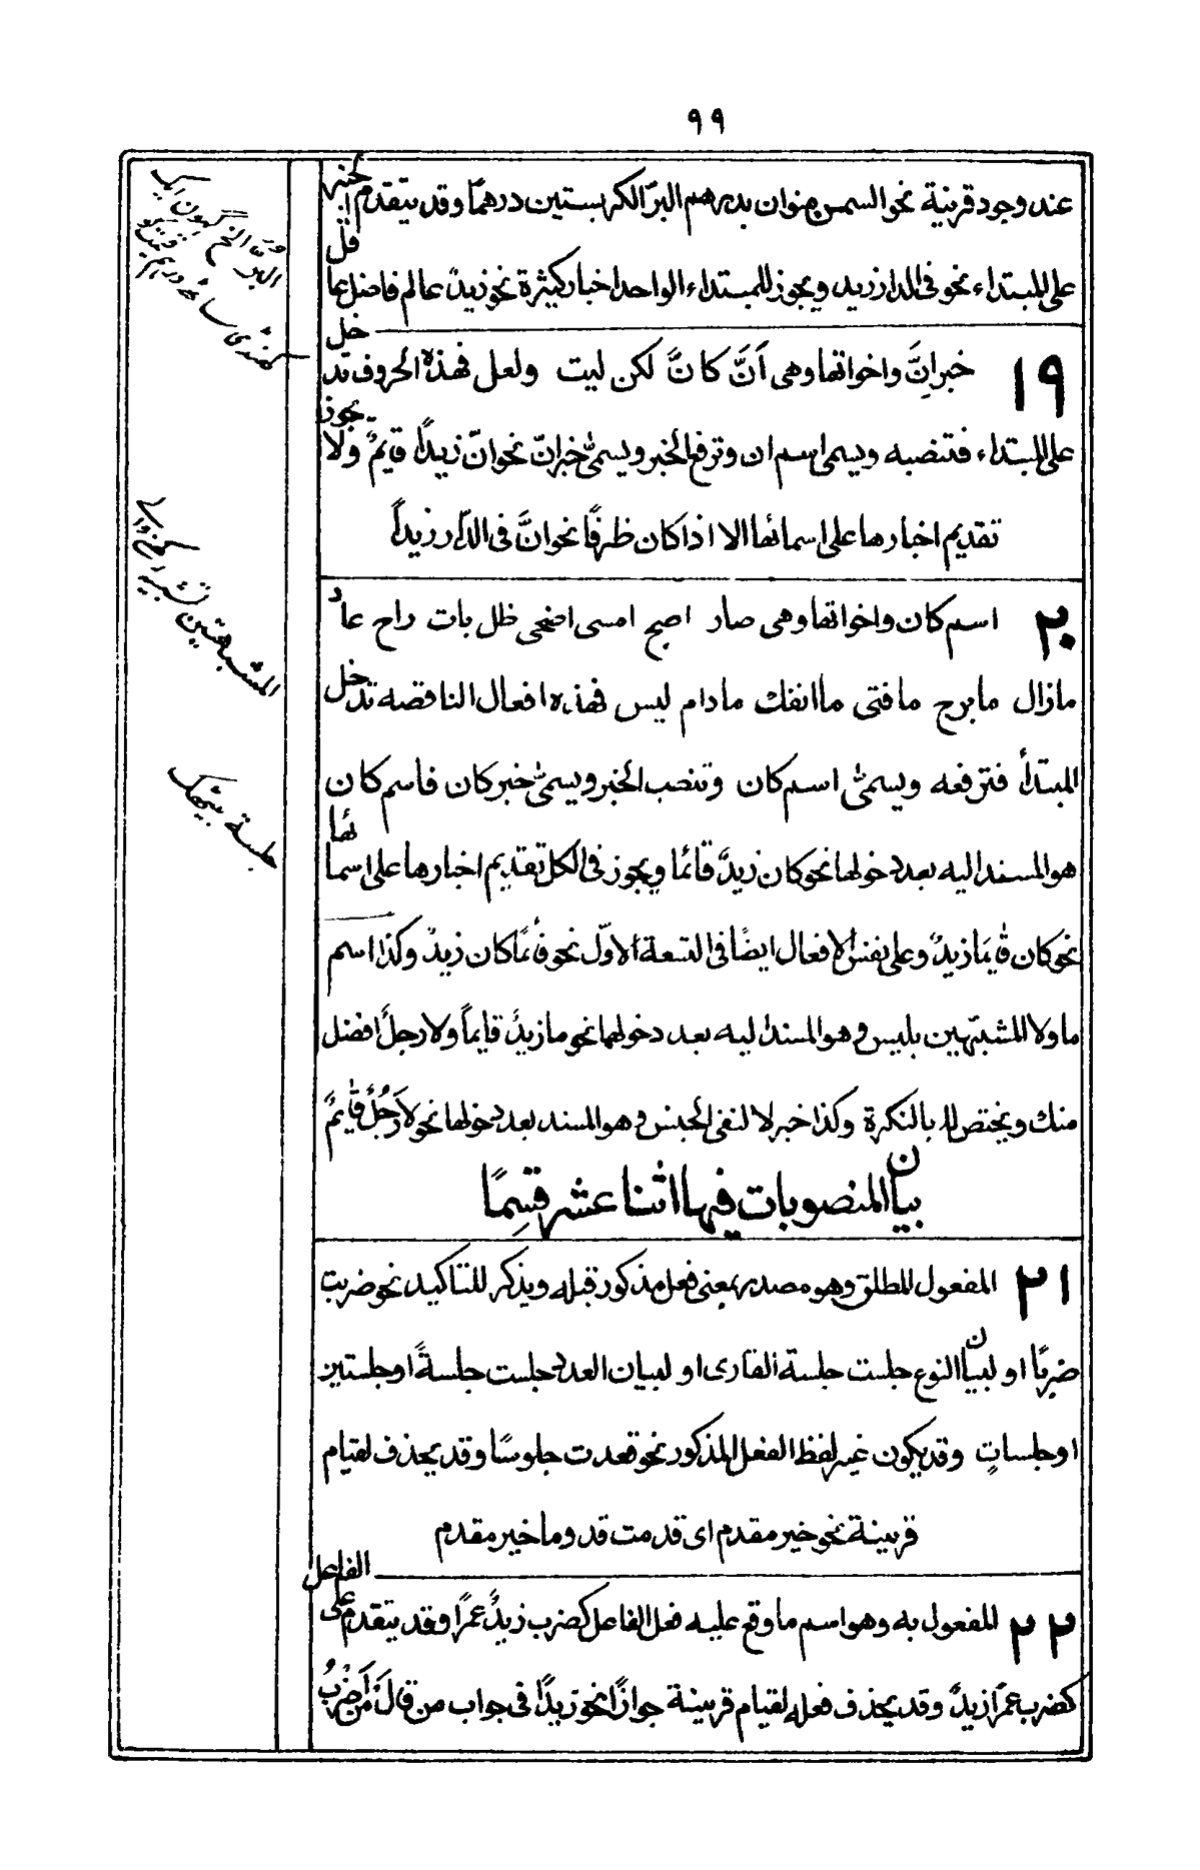 ٩٩
عند وجود قرينة نحو السمن منوان بدرهم البرّ الكر بستين درهمًا وقد يتقدم الخبر
على المبتداء نحو فى الدار زيد ويجوز للمبتداء الواحد اخبار كثيرة نحو زيدٌ عالم فاضل عاقل
١٩ خبر اِنَّ واخواتها وهى اَنَّ كانَّ لكن ليت ولعل فهذه الحروف تدخل
على المبتداء فتنصبه ويسمى اسم ان وترفع الخبر ويسمىٰ خبر انّ نحو انّ زيداً قايمٌ ولا يجوز
تقديم اخبارها على اسمائها الا اذا كان ظرفًا نحو انَّ فى الدّار زيداً
٢٠ اسم كان واخواتها وهى صار اصبح امسى اضحى ظل بات راح عاد
مازال مابرح مافتى ماانفك مادام ليس فهذه افعال الناقصه تدخل
المبتدأ فترفعه ويسمىٰ اسم كان وتنصب الخبر ويسمىٰ خبر كان فاسم كان
هو المسند اليه بعد دخولها نحو كان زيدٌ قائما ويجوز فى الكل تقديم اخبارها على اسمائها
نحو كان قايمَا زيدٌ وعلى نفس الافعال ايضًا فى التسعة الاوّل نحو قائمًا كان زيدٌ وكذا اسم
ما ولا المشبّهين بليس وهو المسند اليه بعد دخولهما نحو ما زيدٌ قايماً ولا رجلٌ افضل
منك ويختص لا بالنكرة وكذا خبر لا لنفى الجنس وهو المسند بعد دخولها نحو لا رَجُلٌ قايمٌ
بيان المنصوبات فيها اثنا عشر قسِمًا
٢١ المفعول المطلق وهو مصدر بمعنى فعل مذكور قبله ويذكر للتاكيد نحو ضربت
ضربًا او لبيان النوع جلست جلسة القارى او لبيان العدد جلست جلسةً او جلستين
او جلساتٍ وقد يكون غير لفظ الفعل المذكور نحو قعدت جلوسًا وقد يحذف لقيام
قرينة نحو خير مقدم اى قدمت قدوما خير مقدم
٢٢ المفعول به وهو اسم ما وقع عليه فعل الفاعل كضرب زيدٌ عمرًا وقد يتقدم على الفاعل
كضرب عمرًا زيدٌ وقد يحذف فعله لقيام قرينة جوازًا نحو زيدًا فى جواب من قالَ مَن اَضْرِبُ
البُرّ الخ گيہوں ايک
المشبهتين
جلسة بيٹھک